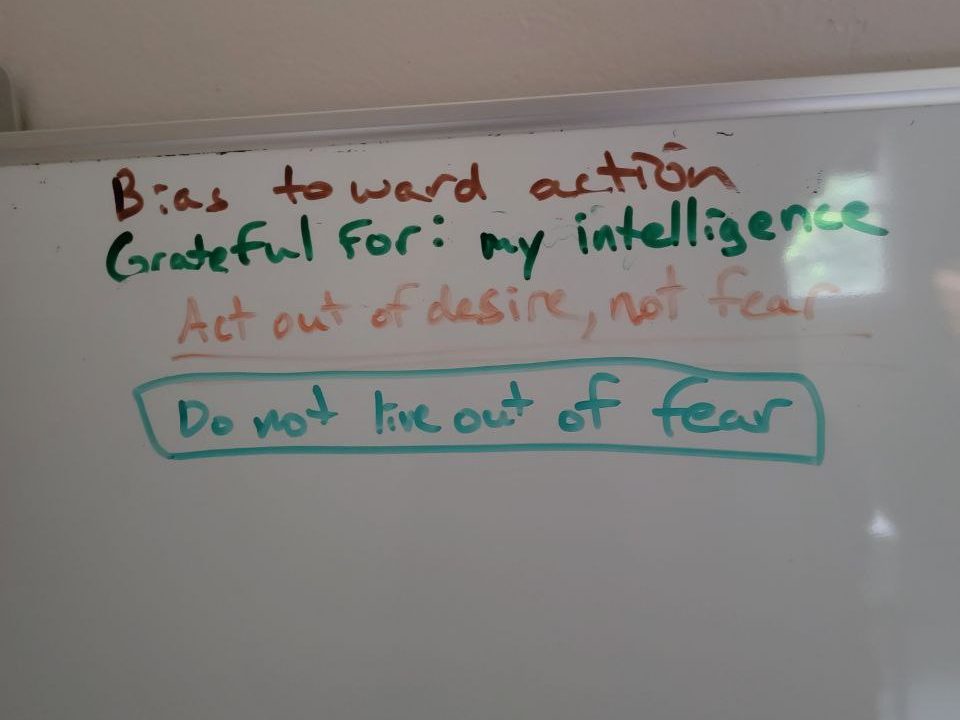 Bias toward action
Grateful For: my intelligence
Act out of desire, not fear
Do not live out of fear